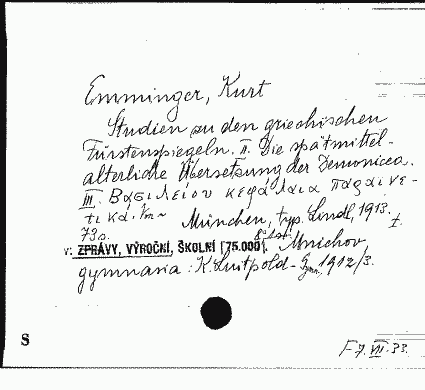 Emminger, Kurt
Studien zu den griechischen
Fürstenspiegeln. II. Die spätmittel-
alterliche Übersetzung der Demonicea.
III. Βασιλείου κεφάλαια παραινε-
τικά. München, typ. Lindl, 1913.
73 s. I.
v: ZPRÁVY, VÝROČNÍ, ŠKOLNÍ [75.000]. Mnichov,
gymnasia: K. Luitpold-Gymn. 1912/3.
S
F 7. VII. 33.